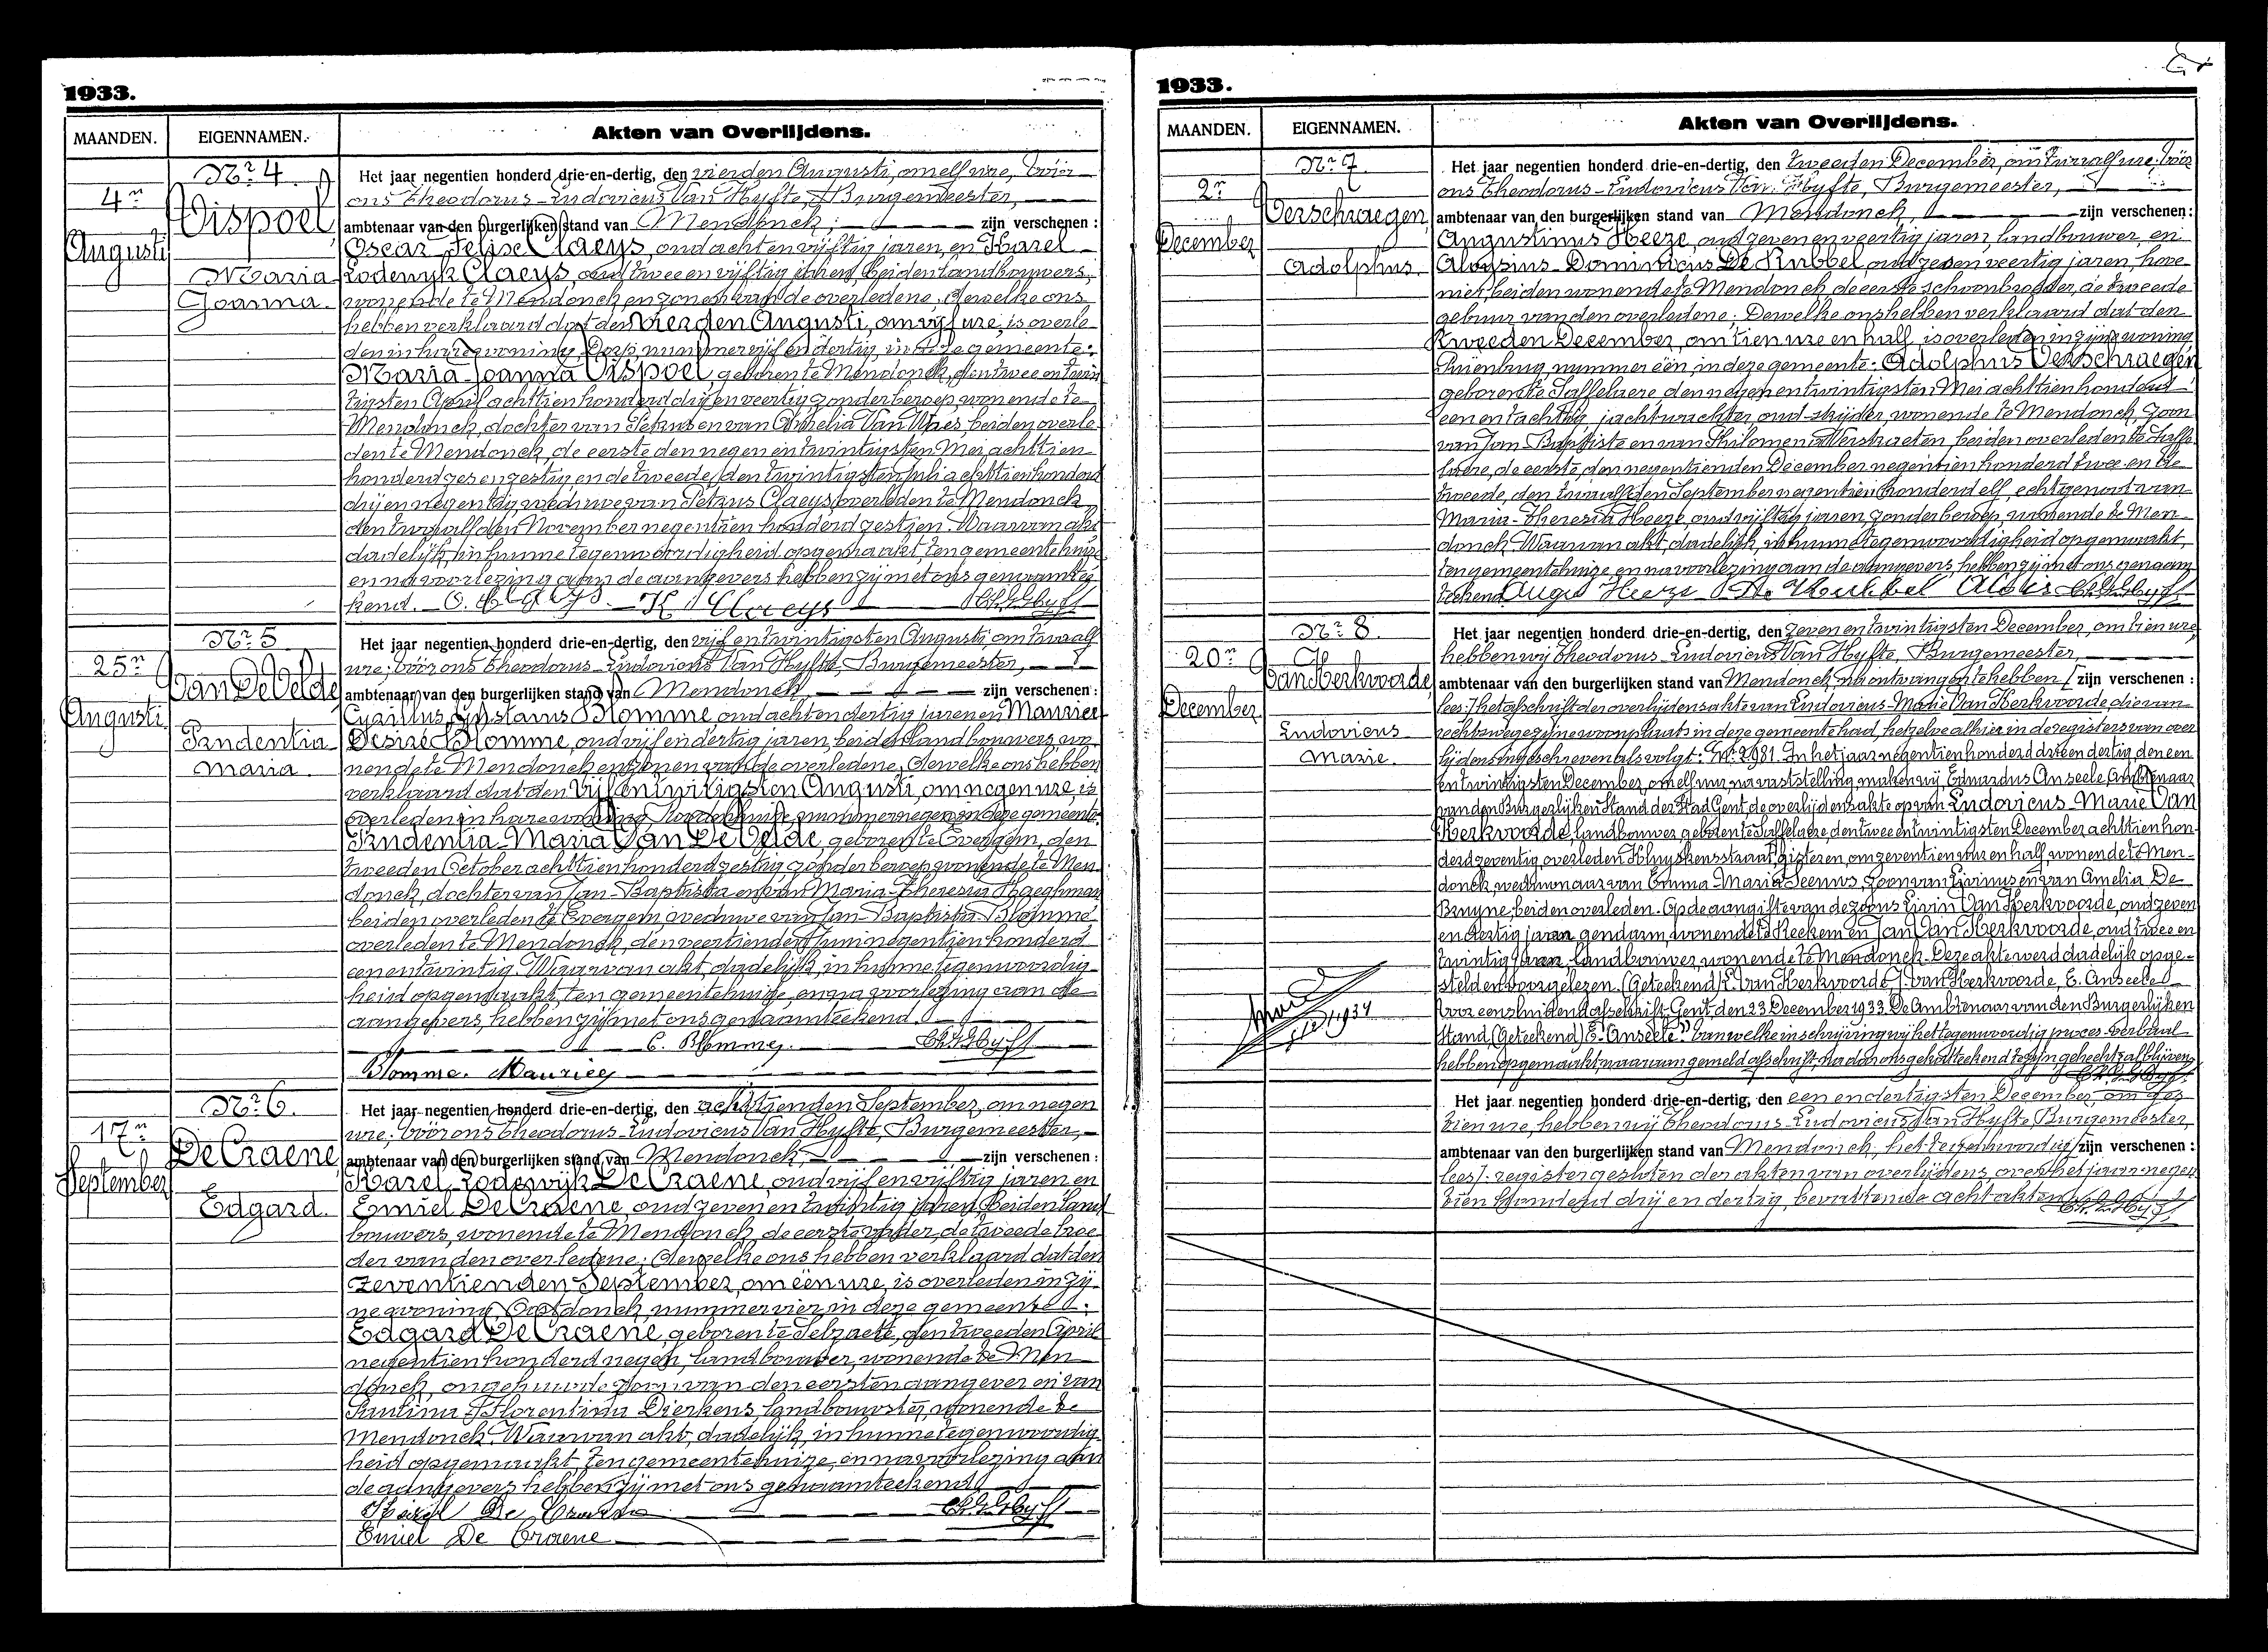 1933.
MAANDEN.
EIGENNAMEN.
Akten van Overlijdens.
Nr 4.
4n
Augusti
Vispoel
Maria
Joanna.
Het jaar negentien honderd drie-en-dertig, den vierden Augusti, om elf ure, vóór
ons Theodorus-Ludovicus Van Hyfte, Burgemeester,
ambtenaar van den burgerlijken stand van Mendonck; zijn verschenen :
Oscar Felise Claeys, oud acht en vijftig jaren, en Karel
Lodewijk Claeys, oud twee en vijftig jaren, beiden landbouwers,
wonende te Mendonck en zonen van de overledene; dewelke ons
hebben verklaard dat den vierden Augusti, om vijf ure, is overle-
den in hare woning, Dorp, nummer vijf en dertig, in deze gemeente:
Maria-Joanna Vispoel, geboren te Mendonck, den twee en twin-
tigsten April achttien honderd drij en veertig, zonder beroep, wonende te
Mendonck, dochter van Petrus en van Amelia Van Waes, beiden overle-
den te Mendonck, de eerste den negen en twintigsten Mei achttien-
honderd zes en zestig en de tweede, den twintigsten Juli achttien honderd
drij en negentig, weduwe van Petrus Claeys, overleden te Mendonck
den twaalfden November negentien honderd zestien. Waarvan akt
dadelijk, in hunne tegenwoordigheid opgemaakt, ten gemeentehuize
en na voorlezing aan de aangevers hebben zij met ons genaamtee-
kend. O. Claeys. K. Claeys
Nr 5
25n
Augusti
Van De Velde
Prudentia
Maria.
Het jaar negentien honderd drie-en-dertig, den vijf en twintigsten Augusti, om twaalf
ure; vóór ons Theodorus-Ludovicus Van Hyfte, Burgemeester,
ambtenaar van den burgerlijken stand van Mendonck zijn verschenen :
Cyrillus, Gustavus Blomme, oud acht en dertig jaren en Maurice
Desiré Blomme, oud vijf en dertig jaren, beiden landbouwers wo-
nende te Mendonck en zonen van de overledene; dewelke ons hebben
verklaard dat den vijf en twintigsten Augusti, om negen ure, is
overleden in hare woning, nummer negen, in deze gemeente:
Prudentia-Maria Van De Velde, geboren te Evergem, den
tweeden October achttien honderd zestig, zonder beroep, wonende te Men-
donck, dochter van Jan-Baptista en van Maria-Theresia Haeghman
beiden overleden te Evergem, weduwe van Jan-Baptista Blomme
overleden te Mendonck, den veertienden Juni negentien honderd
een en twintig. Waarvan akt, dadelijk, in hunne tegenwoordig-
heid opgemaakt, ten gemeentehuize, en na voorlezing aan de
aangevers, hebben zij met ons genaamteekend.
C. Blomme.
Blomme. Maurice
Nr 6.
17n
September
De Craene
Edgard.
Het jaar negentien honderd drie-en-dertig, den achttienden September, om negen
ure; vóór ons Theodorus-Ludovicus Van Hyfte, Burgemeester,
ambtenaar van den burgerlijken stand van Mendonck, zijn verschenen :
Karel Lodewijk De Craene, oud vijf en vijftig jaren en
Emiel De Craene, oud zeven en twintig jaren, beiden land-
bouwers, wonende te Mendonck, de eerste vader, de tweede broe-
der van den overledene; dewelke ons hebben verklaard dat den
zeventienden September, om één ure, is overleden in zij-
ne woning, Oostdonck, nummer vier, in deze gemeente:
Edgard De Craene, geboren te Selzaete, den tweeden April
negentien honderd negen, landbouwer, wonende te Men-
donck, ongehuwde zoon van den eersten aangever en van
Paulina-Florentina Dierkens, landbouwster, wonende te
Mendonck. Waarvan akt, dadelijk, in hunne tegenwoordig-
heid opgemaakt, ten gemeentehuize, en na voorlezing aan
de aangevers hebben zij met ons genaamteekend
Karel De Craene
Emiel De Craene
1933.
MAANDEN.
EIGENNAMEN.
Akten van Overlijdens.
Nr 7.
2n
December
Verschraegen
Adolphus
Het jaar negentien honderd drie-en-dertig, den tweeden December, om twaalf ure; vóór
ons Theodorus-Ludovicus Van Hyfte, Burgemeester,
ambtenaar van den burgerlijken stand van Mendonck, zijn verschenen :
Augustinus Heeze, oud zeven en veertig jaren, landbouwer, en
Aloysius-Dominicus De Kubbel, oud zes en veertig jaren, hove-
nier, beiden wonende te Mendonck, de eerste schoonbroeder, de tweede
gebuur van den overledene; Dewelke ons hebben verklaard dat den
tweeden December, om tien ure en half, is overleden in zijne woning,
nummer één, in deze gemeente: Adolphus Verschraegen
geboren te Saffelaere, den negen en twintigsten Mei achttien honderd
een en tachtig, jachtwachter, oud-strijder, wonende te Mendonck, zoon
van Jan-Baptiste en van Philomena Verstraeten, beiden overleden te Saffe-
laere, de eerste, den negentienden December negentien honderd twee en de
tweede, den twaalfden September negentien honderd elf, echtgenoot van
Maria-Theresia Heeze, oud vijftig jaren, zonder beroep, wonende te Men-
donck. Waarvan akt, dadelijk, in hunne tegenwoordigheid opgemaakt,
ten gemeentehuize en na voorlezing aan de aangevers, hebben zij met ons genaam-
teekend. August Heeze De Kubbel Alois
Nr 8.
20n
December
Van Herkvoorde
Ludovicus
Marie.
Het jaar negentien honderd drie-en-dertig, den zeven en twintigsten December, om tien ure,
hebben wij Theodorus-Ludovicus Van Hyfte, Burgemeester,
ambtenaar van den burgerlijken stand van Mendonck, na ontvangen te hebben [zijn verschenen :
lees]: het afschrift der overlijdensakte van Ludovicus-Marie Van Herkvoorde, die van
rechtswege zijne woonplaats in deze gemeente had, hetzelve alhier in de registers van over-
lijdens ingeschreven als volgt: "Nr 2981. In het jaar negentien honderd drie en dertig, den een
en twintigsten December, om elf uur, na vaststelling maken wij Eduardus Anseele, Ambtenaar
van den Burgerlijken Stand der Stad Gent, de overlijdensakte op van Ludovicus-Marie Van
Herkvoorde, landbouwer, geboren te Saffelaere, den twee en twintigsten December achttien hon-
derd zeventig, overleden Kluyskensstraat, gisteren, om zeventien ure en half, wonende te Men-
donck, weduwnaar van Emma-Maria Seeuws, zoon van Livinus en van Amelia De
Bruyne, beiden overleden. Op de aangifte van de zoons Livin Van Herkvoorde, oud zeven
en dertig jaren, gendarm, wonende te Reckem en Jan Van Herkvoorde, oud twee en
twintig jaren, landbouwer, wonende te Mendonck. Deze akte werd dadelijk opge-
steld en voorgelezen. (Geteekend) L. Van Herkvoorde, J. Van Herkvoorde, E. Anseele.
Voor eensluidend afschrift, Gent, den 23 December 1933. De Ambtenaar van den Burgerlijken
Stand, (Geteekend) E. Anseele." Van welke inschrijving wij het tegenwoordig proces-verbaal
hebben opgemaakt, waaraan gemeld afschrift, na door ons geteekend te zijn gehecht zal blijven.
Het jaar negentien honderd drie-en-dertig, den een en dertigsten December, om zes-
tien ure, hebben wij Theodorus-Ludovicus Van Hyfte, Burgemeester,
ambtenaar van den burgerlijken stand van Mendonck, het tegenwoordig [zijn verschenen :
lees]: register gesloten der akten van overlijdens, over het jaar negen-
tien honderd drij en dertig, bevattende acht akten.